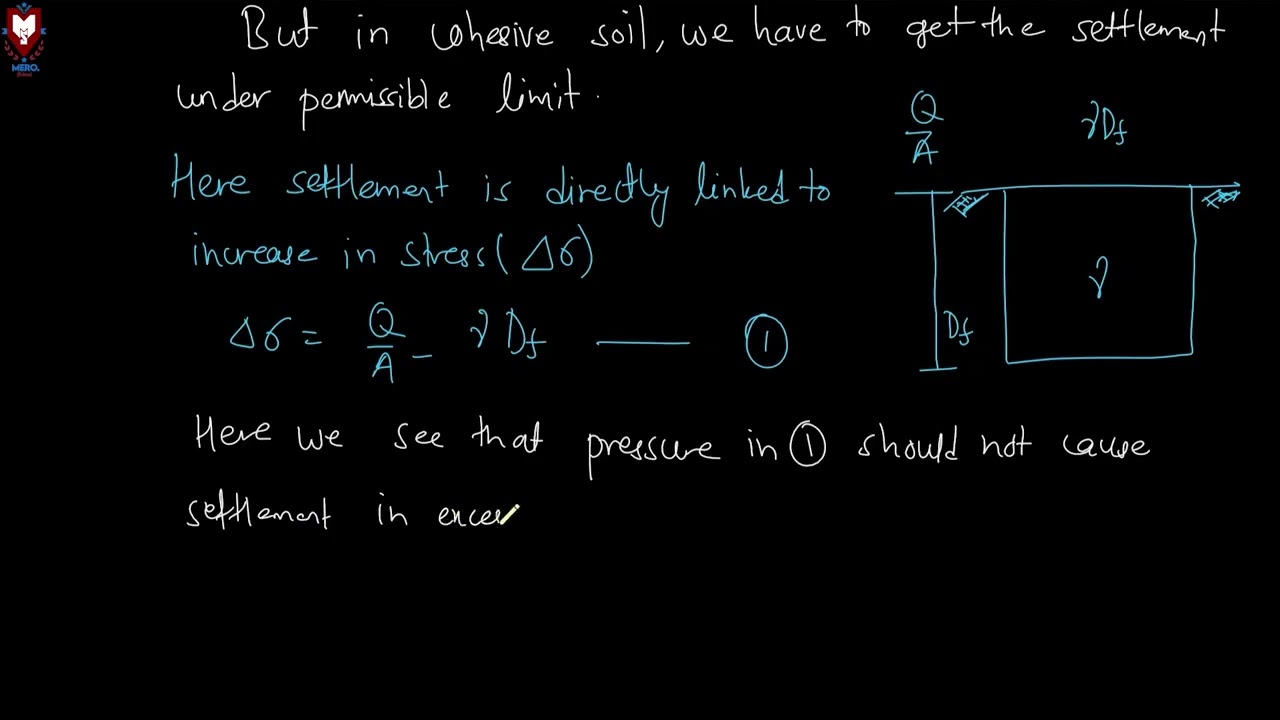 MERO.
But in cohesive soil, we have to get the settlement
under permissible limit.
Q/A
γDf
Here settlement is directly linked to
increase in stress (Δσ)
γ
Df
Δσ = Q/A - γ Df —— ①
Here we see that pressure in ① should not cause
settlement in exces